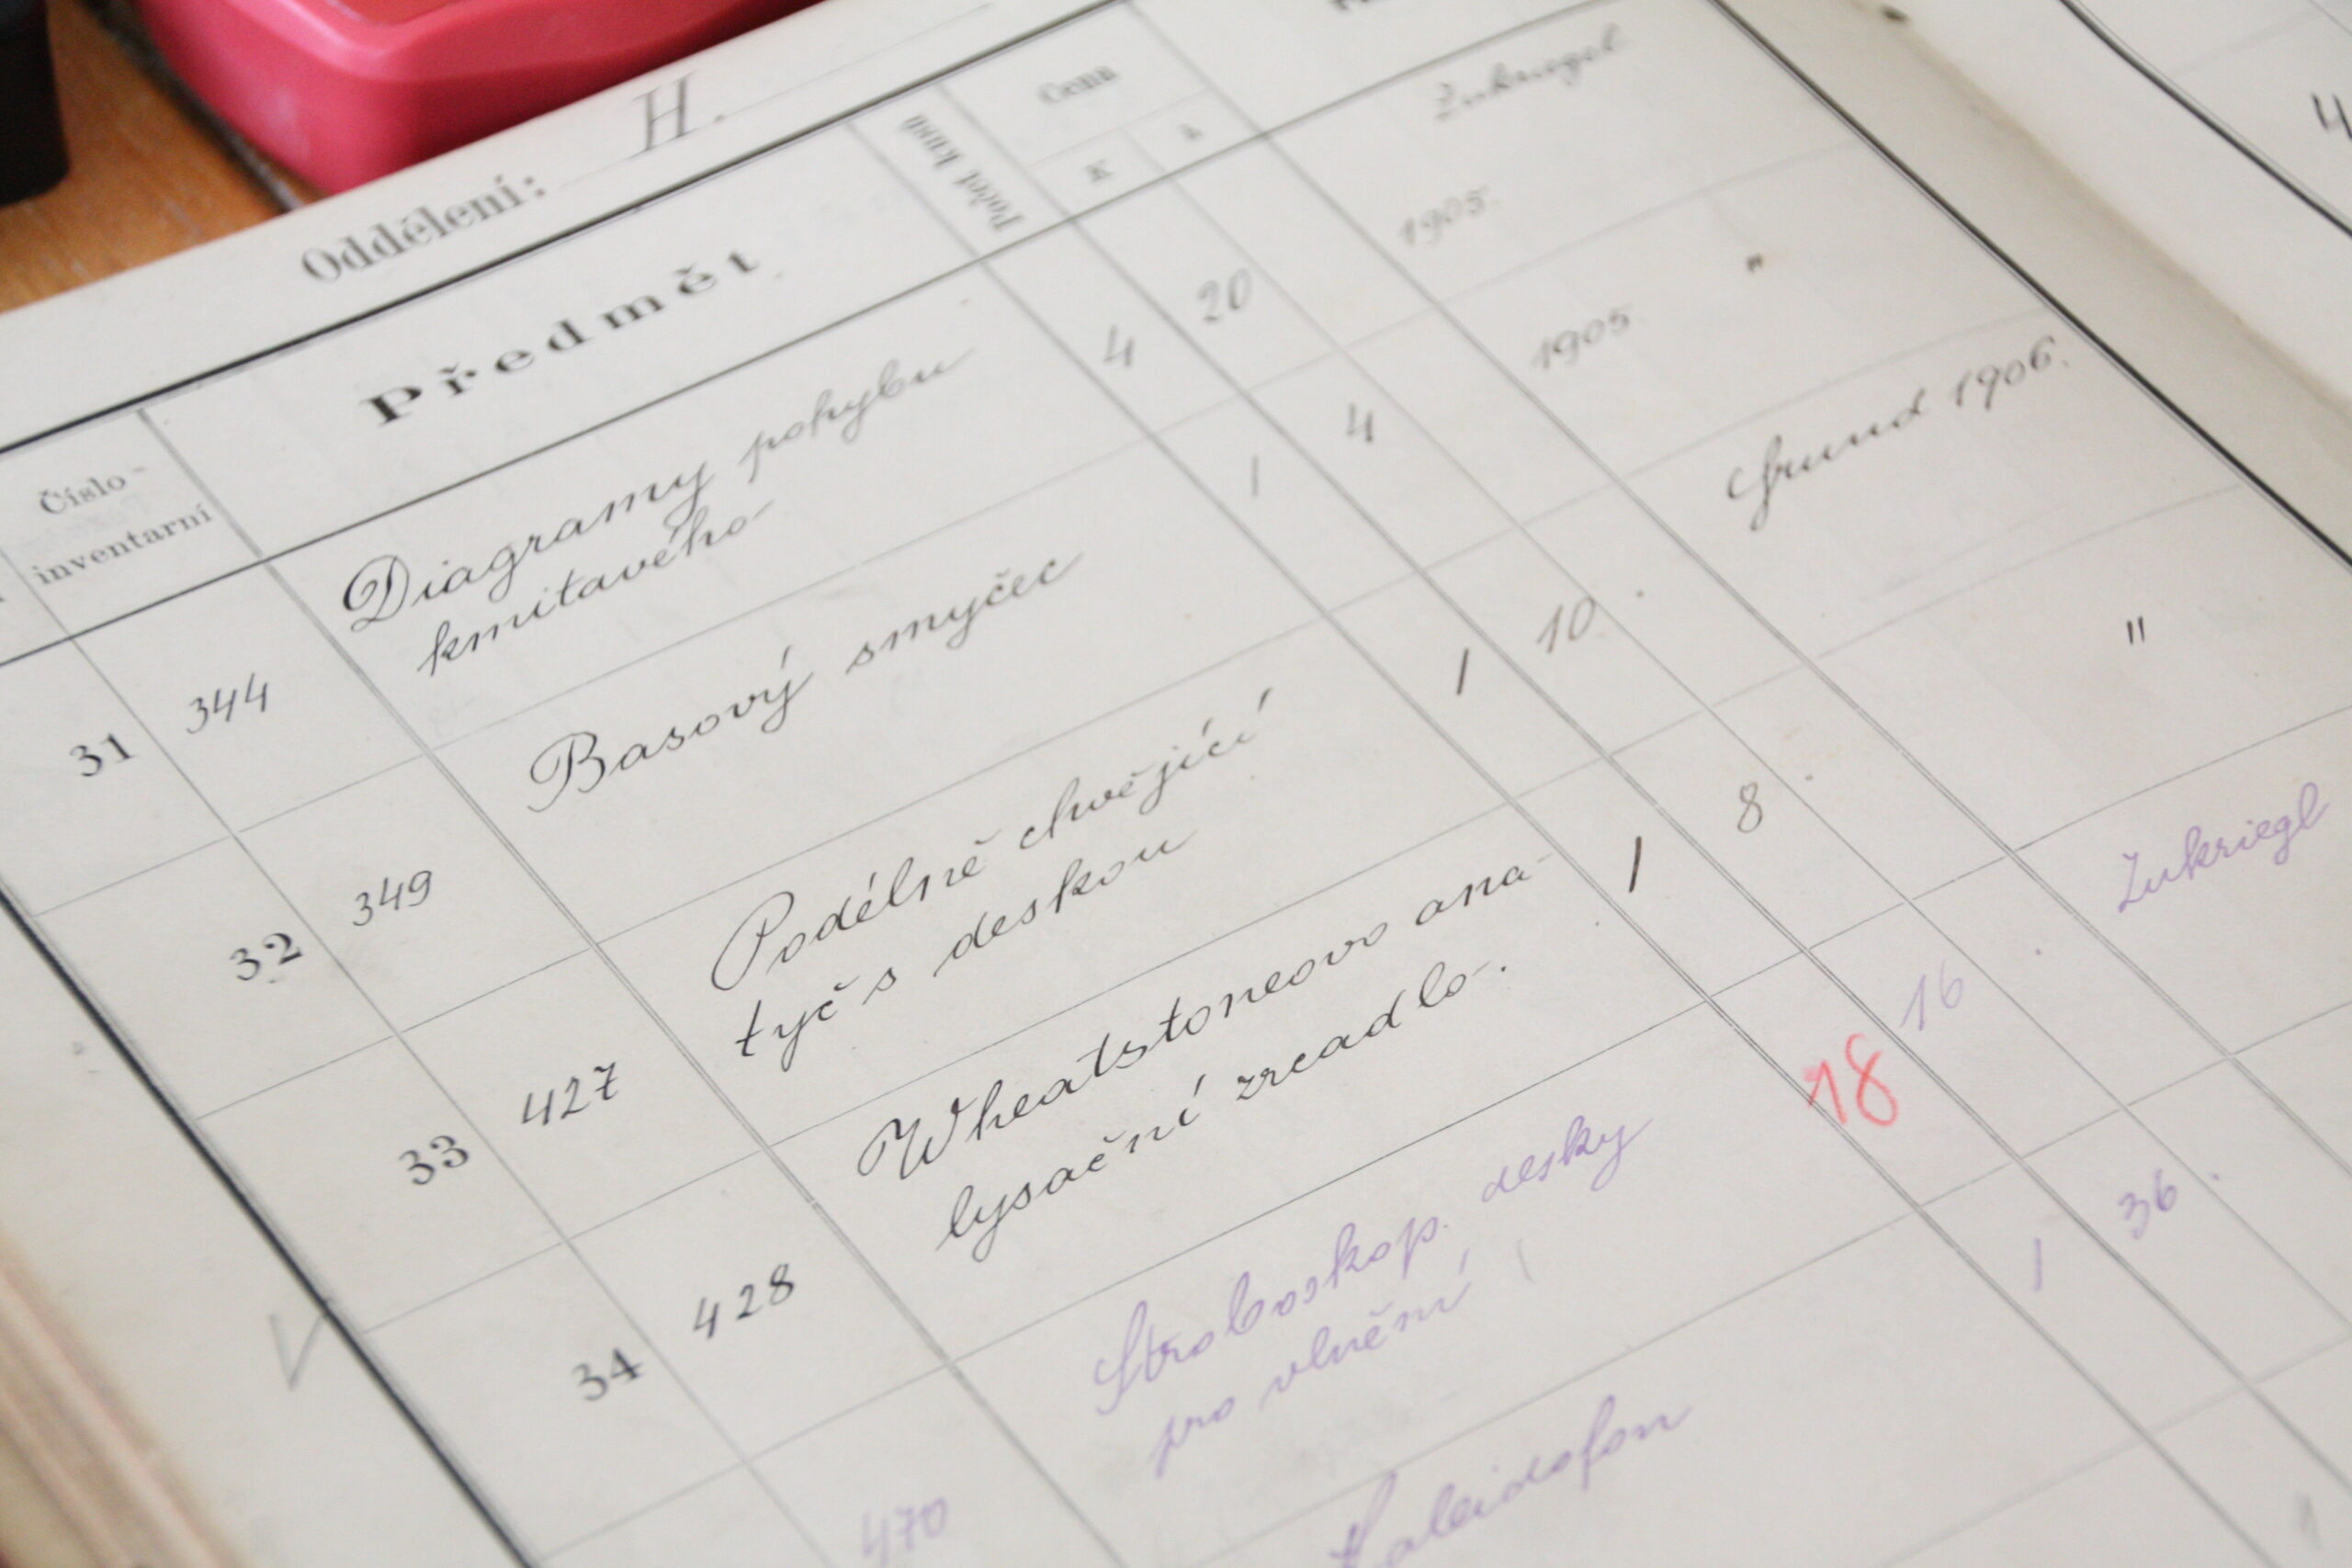 Oddělení: H.
Číslo-
inventarní
Předmět
Počet kusů
Cena
K h
31 344 Diagramy pohybu 4 20 1905. Žukriegel
kmitavého
32 349 Basový smyčec 1 4 1905 "
33 427 Podélně chvějící 1 10 . Grund 1906.
tyč s deskou
34 428 Wheatstoneovo ana- 1 8 . "
lysační zrcadlo.
470 Stroboskop. desky 18 16 . Žukriegl
pro vlnění
Kaleidofon 1 36 .
1
4